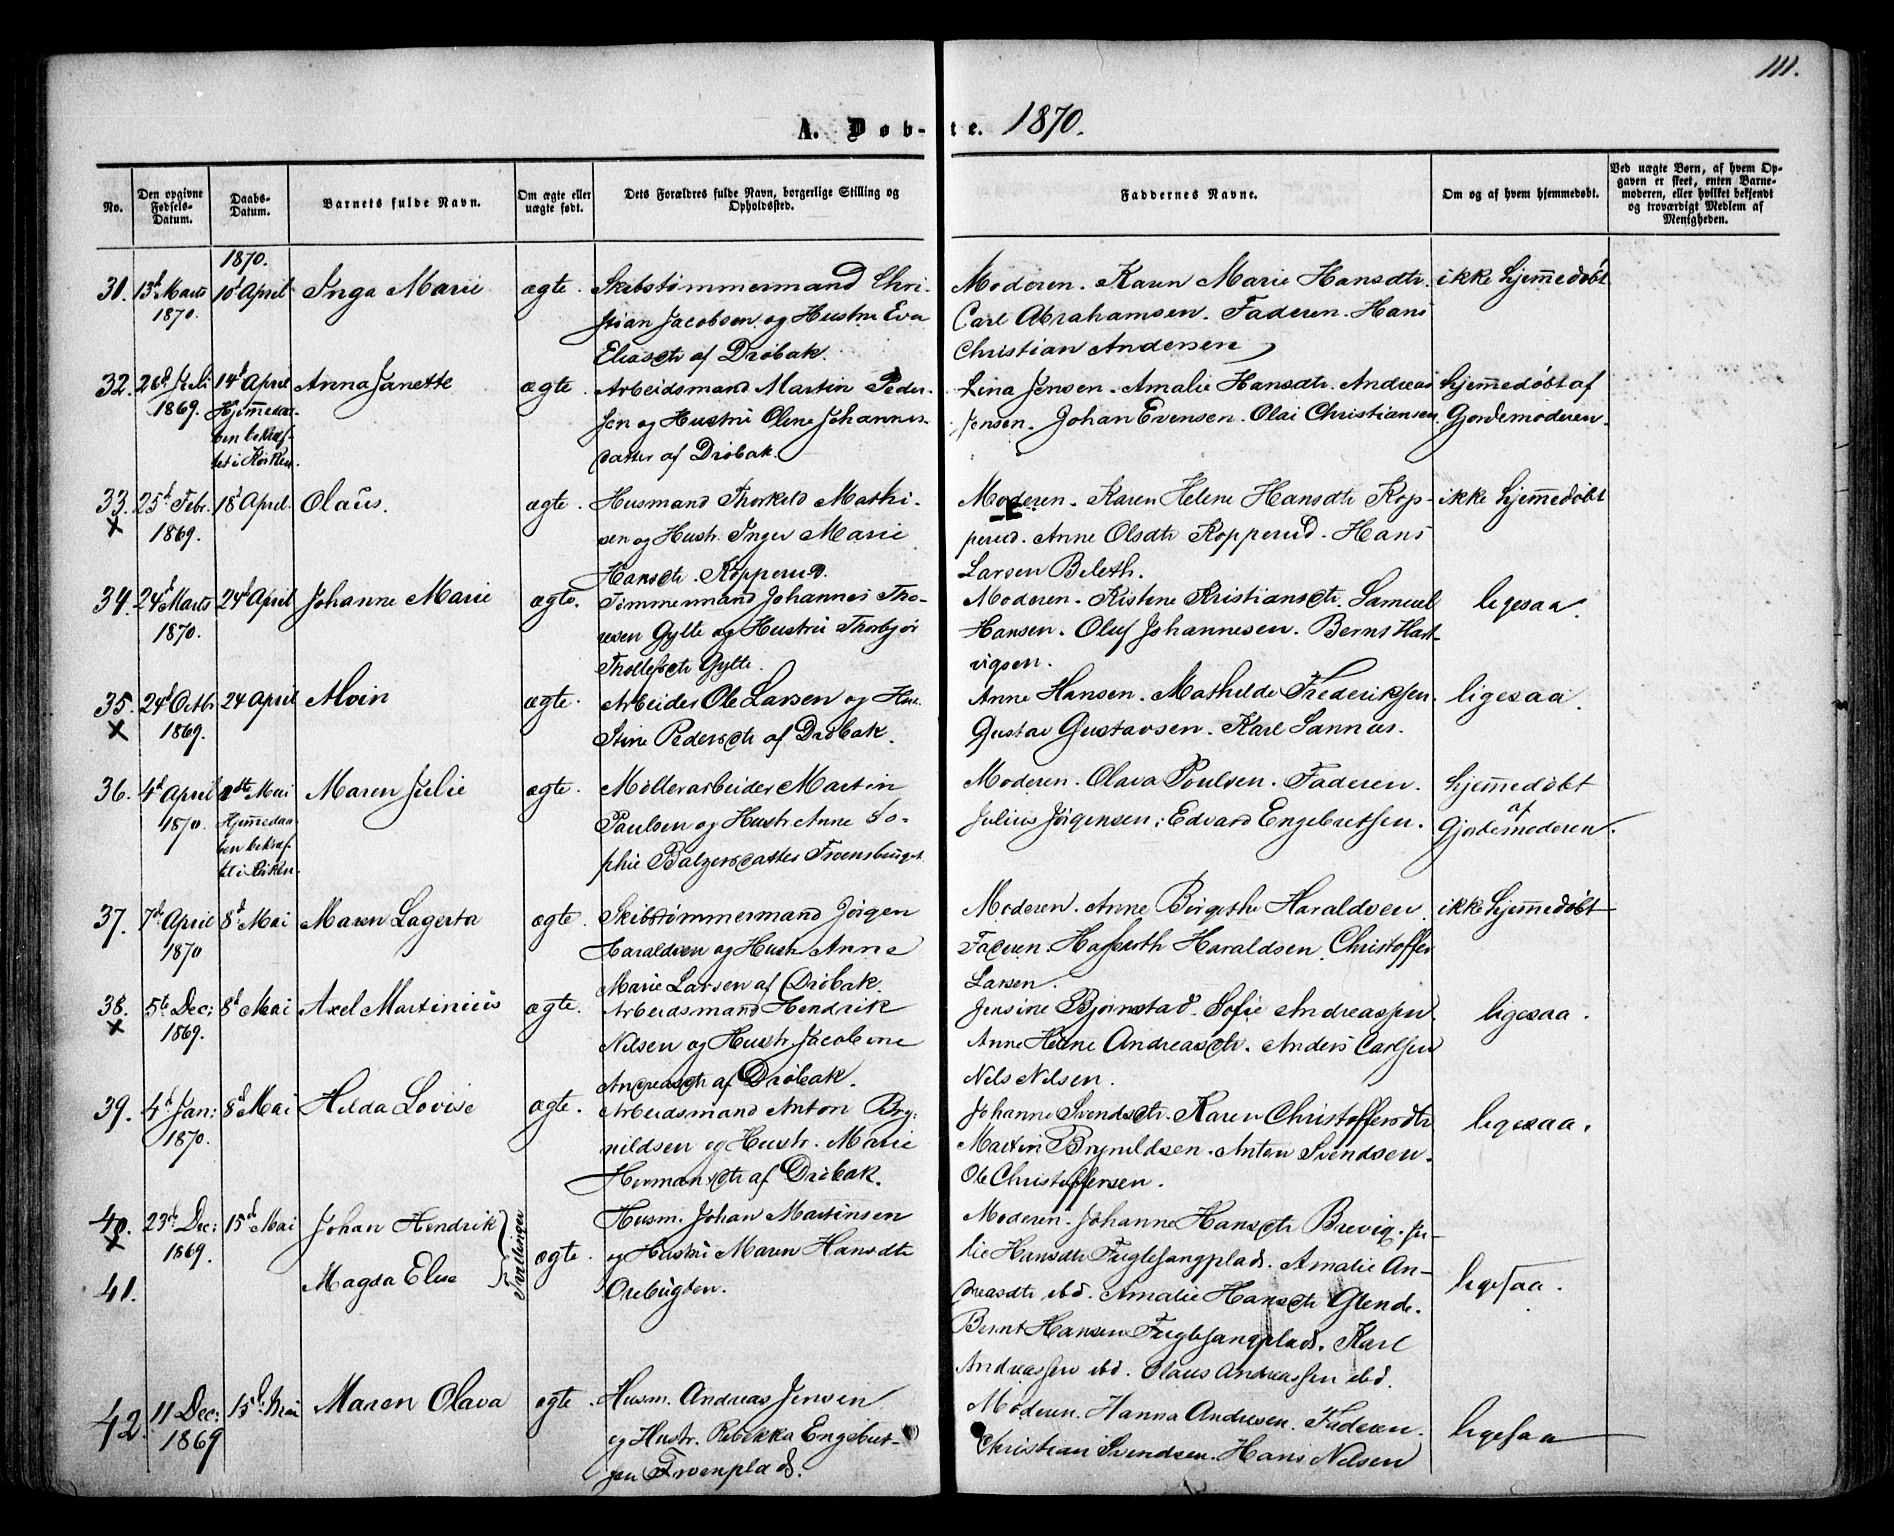 111.
A. Døb-te. 1870.
No.
Den opgivne Fødsels-Datum.
Daabs-Datum.
Barnets fulde Navn.
Om ægte eller uægte født.
Dets Forældres fulde Navn, borgerlige Stilling og Opholdssted.
Faddernes Navne.
Om og af hvem hjemmedøbt.
Ved uægte Børn, af hvem Opgaven er skeet, enten Barnemoderen, eller hvilket bekjendt og troværdigt Medlem af Menigheden.
1870.
31. 13d Marts 1870. 10d April Inga Marie ægte.
Skibstømmermand Chri-
stian Jacobsen og Hustru Eva
Eliasdtr af Drøbak.
Moderen. Karen Marie Hansdtr.
Carl Abrahamsen. Faderen. Hans
Christian Andersen
ikke hjemmedøbt
32. 26d Juli 1869. 14d April Anna Janette ægte.
Hjemmedaa-
ben bekræf-
tet i Kirken.
Arbeidsmand Martin Peder-
sen og Hustru Oline Johannes-
datter af Drøbak.
Lina Jensen. Amalie Hansdtr. Andreas
Jensen. Johan Evensen. Olai Christiansen.
hjemmedøbt af
Gjordemoderen.
33. x 25d Febr. 1869. 18d April Olaus. ægte.
Husmand Thorkeld Mathi-
sen og Hustr. Inger Marie
Hansdtr. Kopperud.
Moderen. Karen Helene Hansdtr Kop-
perud. Anne Olsdtr Kopperud. Hans
Larsen Beleth.
ikke hjemmedøbt
34. 24d Marts 1870. 24d April Johanne Marie ægte.
Tømmermand Johannes Tho-
resen Gylte og Hustru Thorbjør
Thollefsdtr Gylte.
Moderen. Kistene Kristiansdtr. Samuel
Hansen. Oluf Johannesen. Bernt Hart-
vigsen.
ligesaa.
35. x 24d Octbr 1869. 24 April Alvin ægte.
Arbeider Ole Larsen og Hus.
Stine Pedersdtr af Drøbak.
Anne Hansen. Mathilde Frederiksen.
Gustav Gustavsen. Karl Sannæs.
ligesaa.
36. 4d April 1870. Mai Maren Julie ægte.
Hjemmedaa-
ben bekræf-
tet i Kirken.
Møllerarbeider Martin
Paulsen og Hustr Anne So-
phie Balzersdatter
Moderen. Olava Poulsen. Faderen.
Julius Jørgensen. Edvard Engebretsen.
hjemmedøbt
af
Gjordemoderen.
37. 7de April 1870 8d Mai Maren Lagerta ægte.
Skibstømmermand Jørgen
Haraldsen og Hustr Anne
Marie Larsen af Drøbak.
Moderen. Anne Birgithe Haraldsen
Faderen. Haraldsen. Christoffer
Larsen.
ikke hjemmedøbt
38. x 5te Dec: 1869. 8d Mai Axel Martinius ægte.
Arbeidsmand Hendrik
Nilsen og Hustr. Jacobine
Andreasdtr af Drøbak.
Jensine Bjørnstad. Sofie Andreassen.
Anne Helene Andreasdtr. Anders Carlsen
Nels Nelsen.
ligesaa.
39. 4d Jan: 1870. 8d Mai Hilda Lovise ægte.
Arbeidsmand Anton Bry-
nildsen og Hustr. Marie
Hermansdtr af Drøbak.
Johanne Svendsdtr. Karen Christoffersdtr
Martin Brynildsen. Anton Svendsen.
Ole Christoffersen.
ligesaa.
40. x 23d Dec: 1869. 15d Mai Johan Hendrik
41. Magda Elise
Tvillinger
ægte.
Husm. Johan Martinsen
og Hustru Maren Hansdtr
Orebugten.
Moderen. Johanne Hansdtr Brevig. Ju-
lie Hansdtr Fuglesangplads. Amalie An-
dreasdtr ibd. Amalie Hansdtr Glende.
Bernt Hansen Fuglesangplads. Karl
Andreassen ibd. Olaus Andreassen ibd.
ligesaa.
42. 11 Dec: 1869 15d Mai Maren Olava ægte.
Husm. Andreas Jensen
og Hustr. Rebekka Engebret-
sen Froenplads.
Moderen. Hanna Andresen. Faderen.
Christian Svendsen. Hans Nelsen
ligesaa